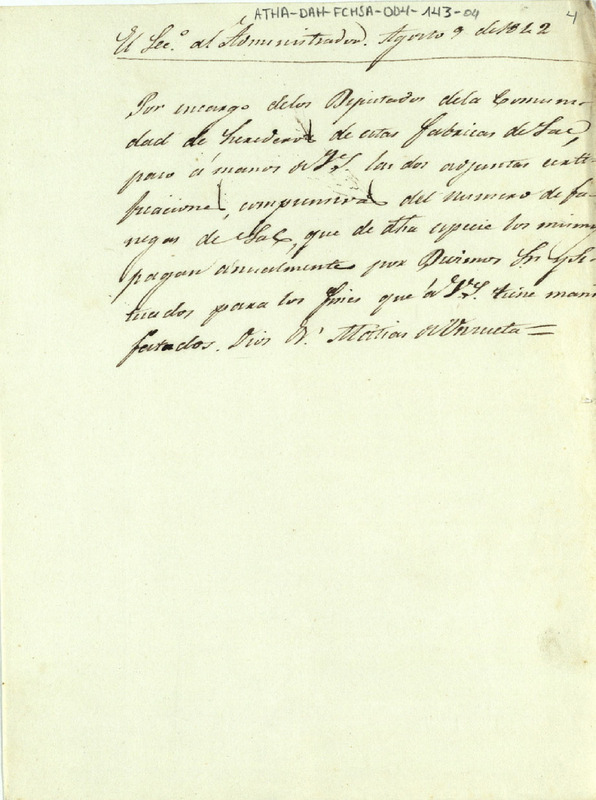 ATHA-DAH-FCHSA-004-143-04
4
El Sec.º al Administrador. Agosto 9 de 1842
Por encargo delos Diputados dela Comuni-
dad de herederos de estas fabricas de Sal,
paso á manos de V.S. las dos adjuntas certi-
ficaciones, comprensivas del numero de fa-
negas de Sal, que de dha especie los mismos
pagan anualmente por Diezmos
tuados para los fines que á V.S. tiene mani-
festados. Dios &.ª Matias de Urrueta=